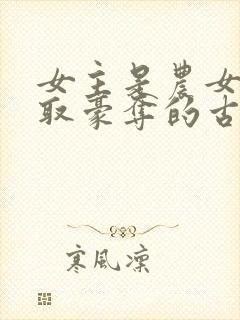 女主是農女
取豪奪的古
寒風凜